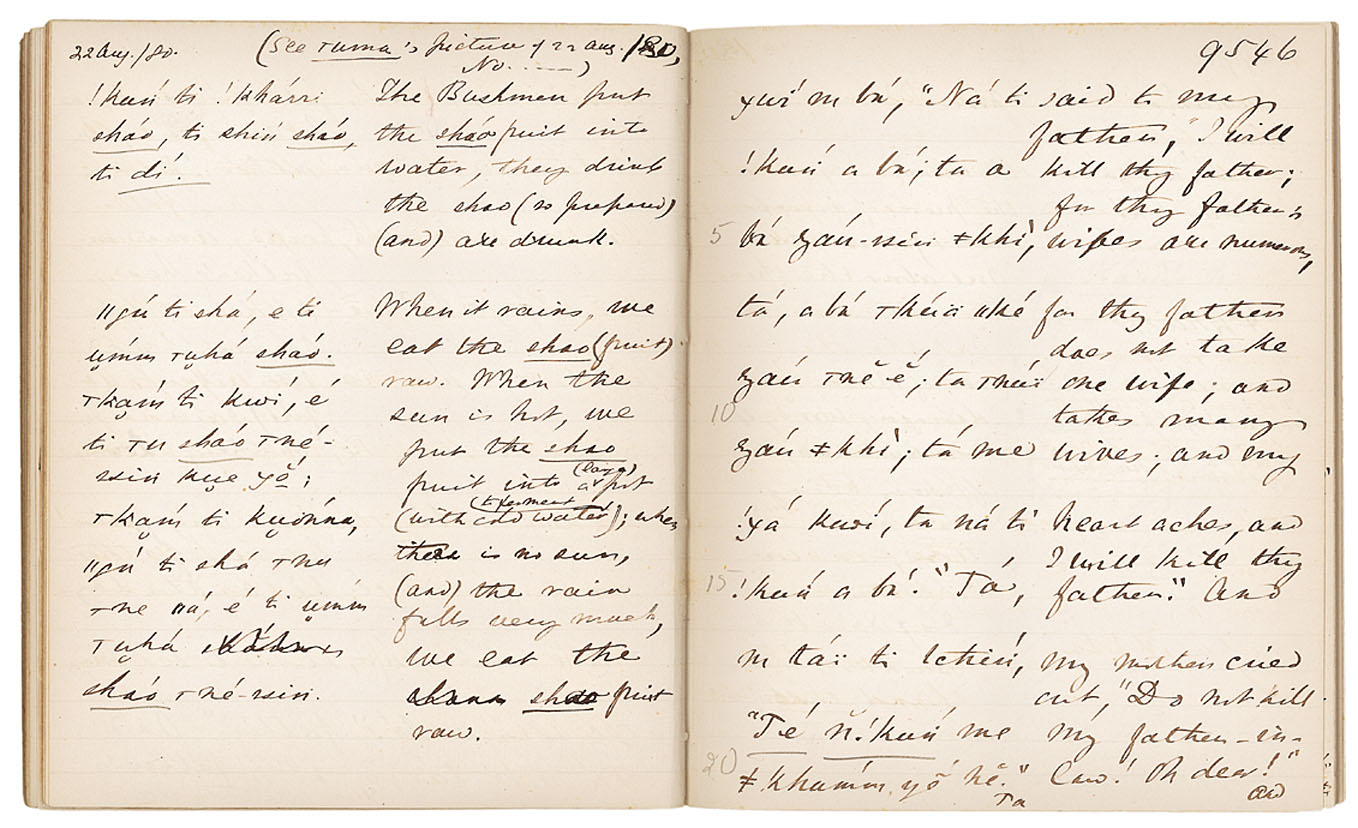 22 Aug./80. (See Tuma's picture of 22 Aug. /80,
No. ——)
!kuń ti !khárri
sháo, ti shiń sháo,
ti dí.
The Bushmen put
the sháo fruit into
water, they drink
the shao (so prepared)
(and) are drunk.
"gú ti shá, e ti
ụmm ṭuhá sháo.
ti kuí, é
ti tu sháo tné-
ssin kue yŏ́;
ti
"gú ti shá tnu
tne é ti ụmm
ṭuhá
sháo tné-ssin.
When it rains, we
eat the shao (fruit)
raw. When the
sun is hot, we
put the shao
(large)
fruit into a pot
(to ferment
(with cold water); when
there is no sun,
(and) the rain
falls very much,
we eat the
shao fruit
raw.
9546
m bá, "Ná ti said to my
father, "I will
!kuń a bá; ta a kill thy father;
for thy father's
5 bá ≠khí, wives are numerous,
tá, a bá for thy father
does not take
one wife; and
10 takes many
≠khí; tá me wives; and my
!χá kuí, ta ná ti heart aches, and
I will kill thy
15 !kuń a bá." Tá, father." And
m táï ti my mother cried
out, "Do not kill
"Té ň!kuń me my father-in-
20 yŏ́ hĕ." law! Oh dear!"
Ta and